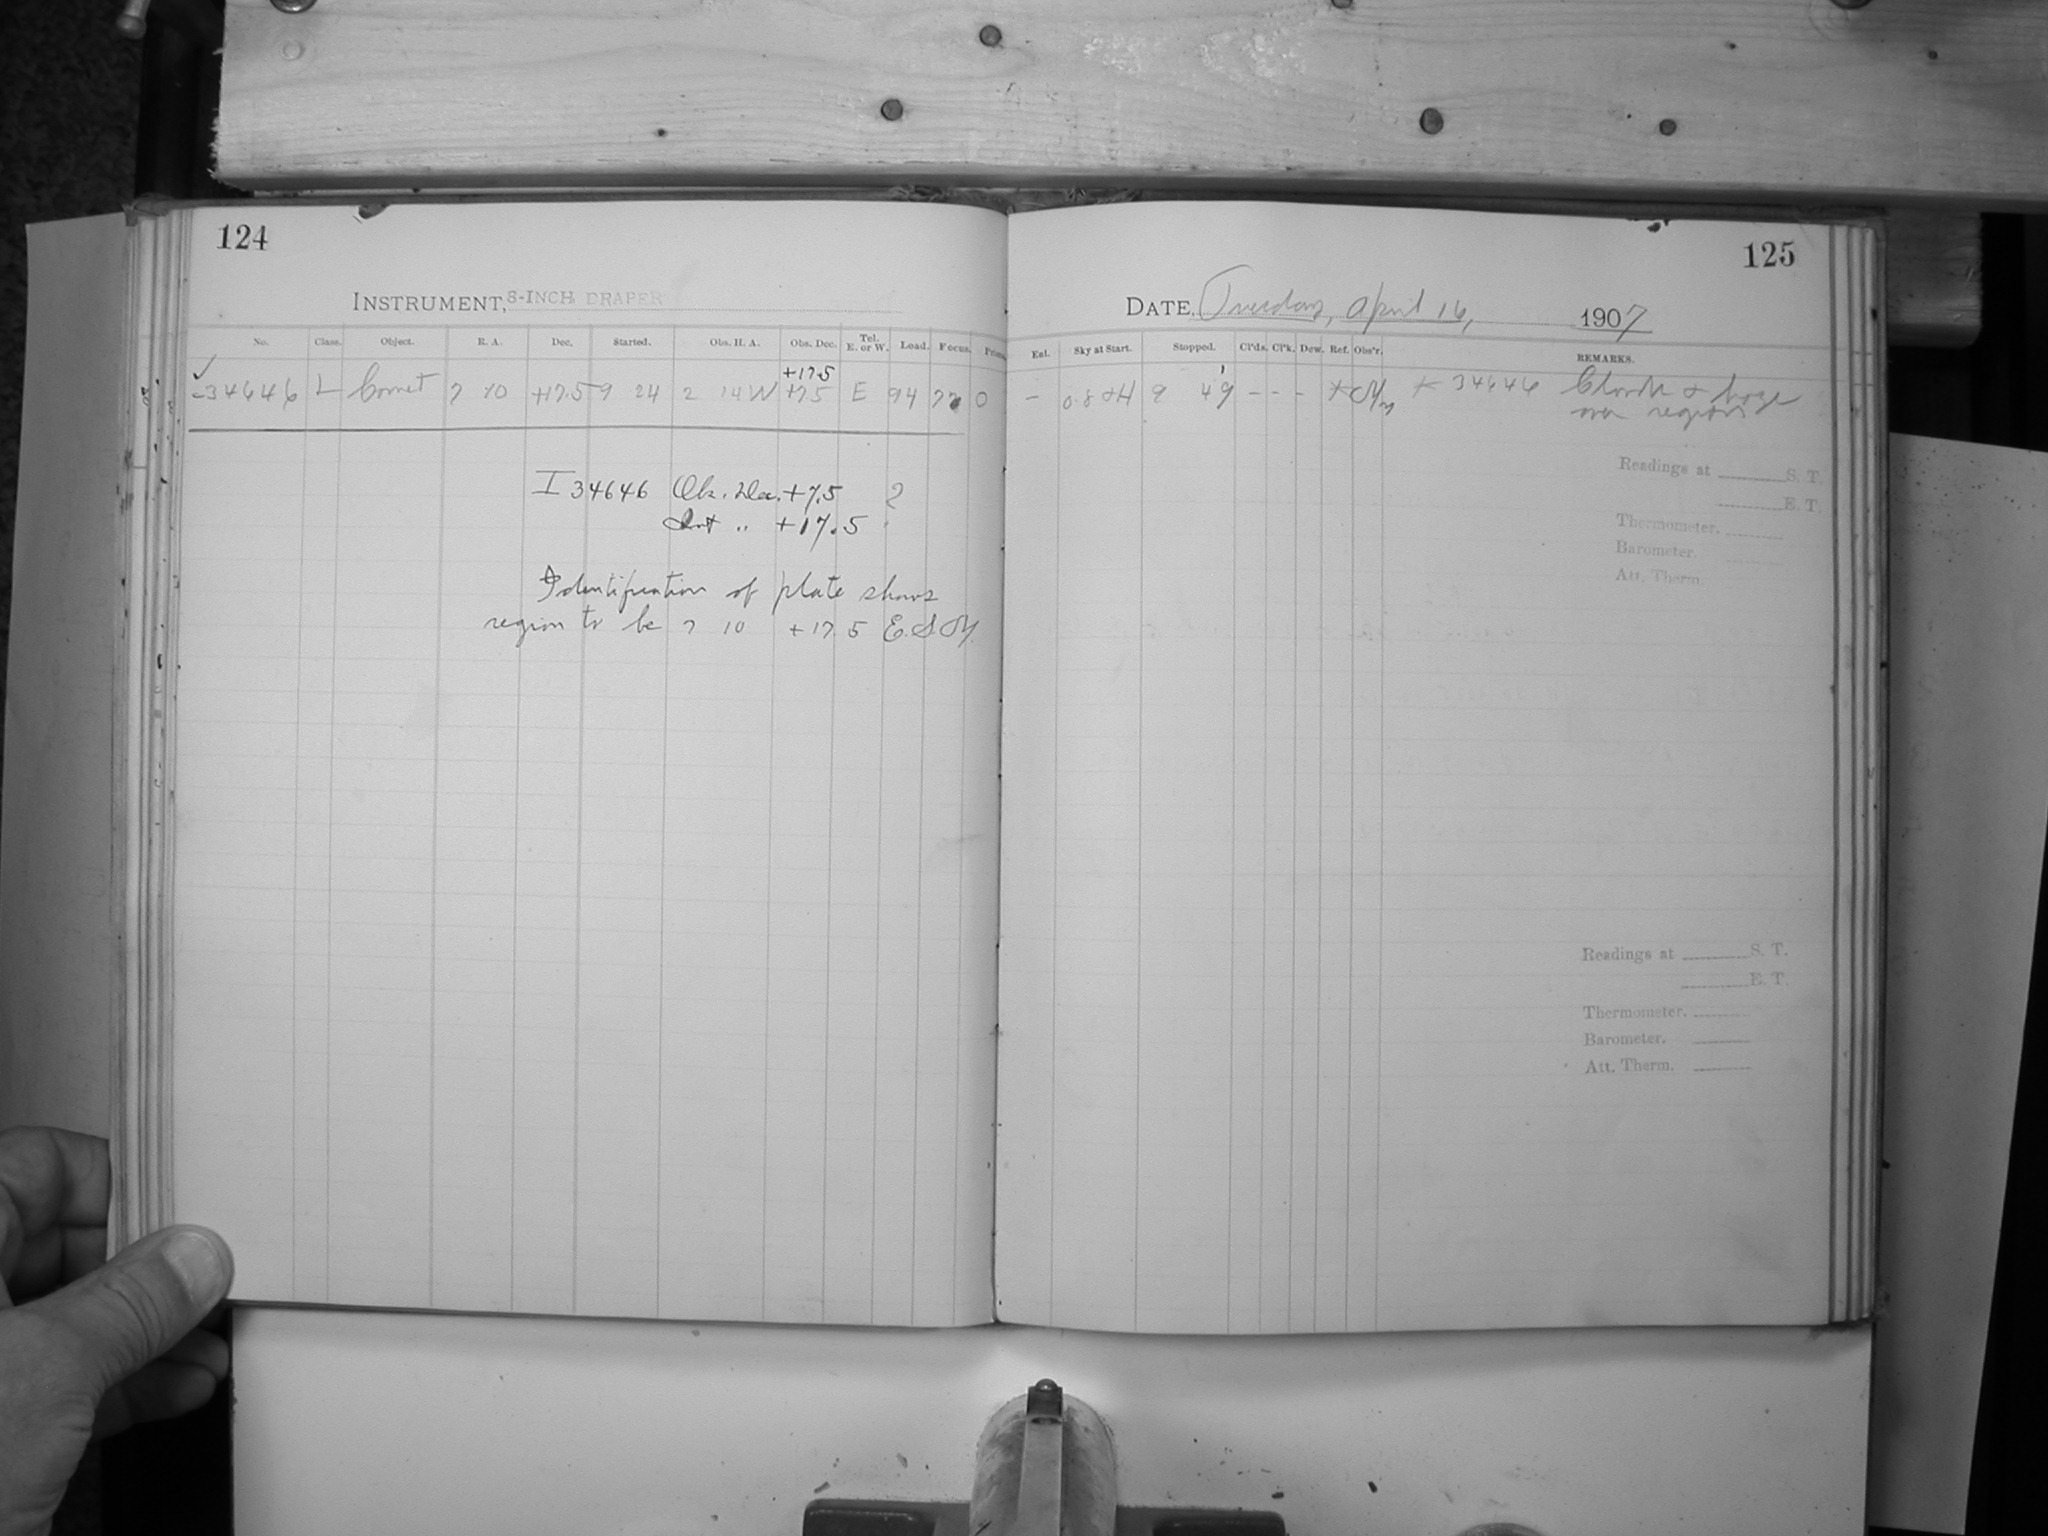 124
INSTRUMENT, 8-INCH DRAPER
No. Class. Object. R. A. Dec. Started. Obs. H. A. Obs. Dec. Tel. E. or W. Lead. Focus. Prism
+17.5
34646 L Comet 7 10 +17.5 9 24 2 14 W +7.5 E 94 0
I 34646 Obs. Dec. +7.5 ?
Int " +17.5
Identification of plate shows
region to be 7 10 +17.5 E.S.M.
125
DATE, Tuesday, April 16, 1907
Ent. Sky at Start. Stopped. Cl'ds. Cl'k. Dew. Ref. Obs'r. REMARKS.
– 0.8 9 49 – – – * * 34646 Clouds & haze
over region
Readings at S. T.
E. T.
Thermometer.
Barometer.
Att. Therm.
Readings at S. T.
E. T.
Thermometer.
Barometer.
Att. Therm.